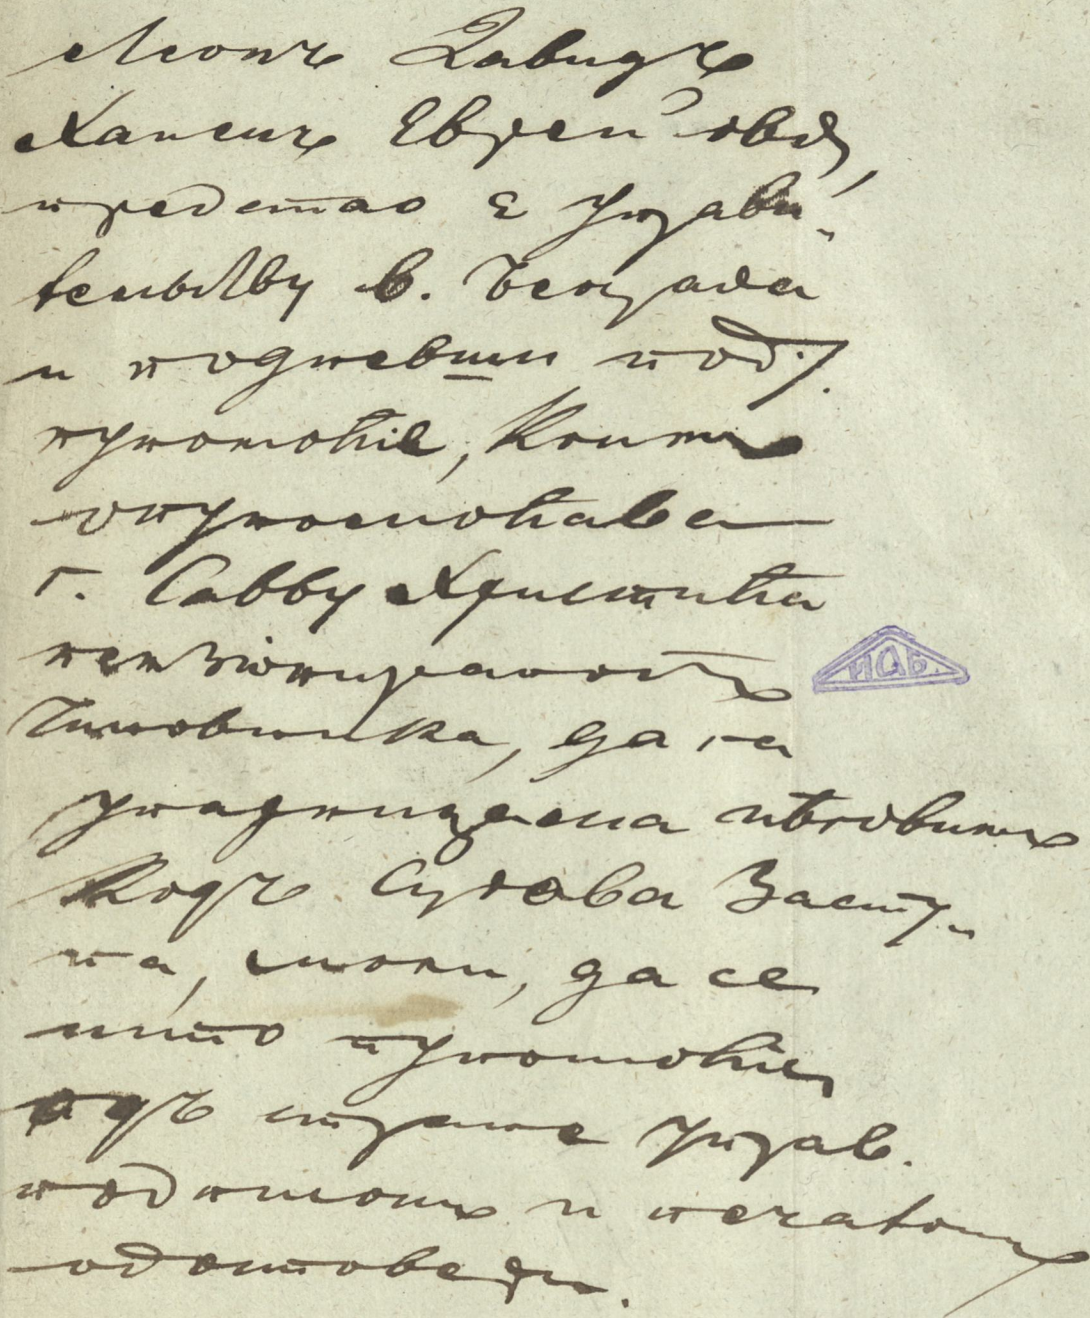 Леонъ Давидъ
Хаимъ Еврей овд.,
предстао є управи-
тельству в. Београда
и подневши под /.
пуномоћіе, коимъ
опуномоћава
г. Савву Христића
пензіонираногъ
чиновника, да га
у парницама нѣговимъ
кодъ Судова Засту-
па, моли, да се
исто пуномоћіе,
одъ стране управ.
подписомъ и печатомъ
одотовери.
ИАБ.